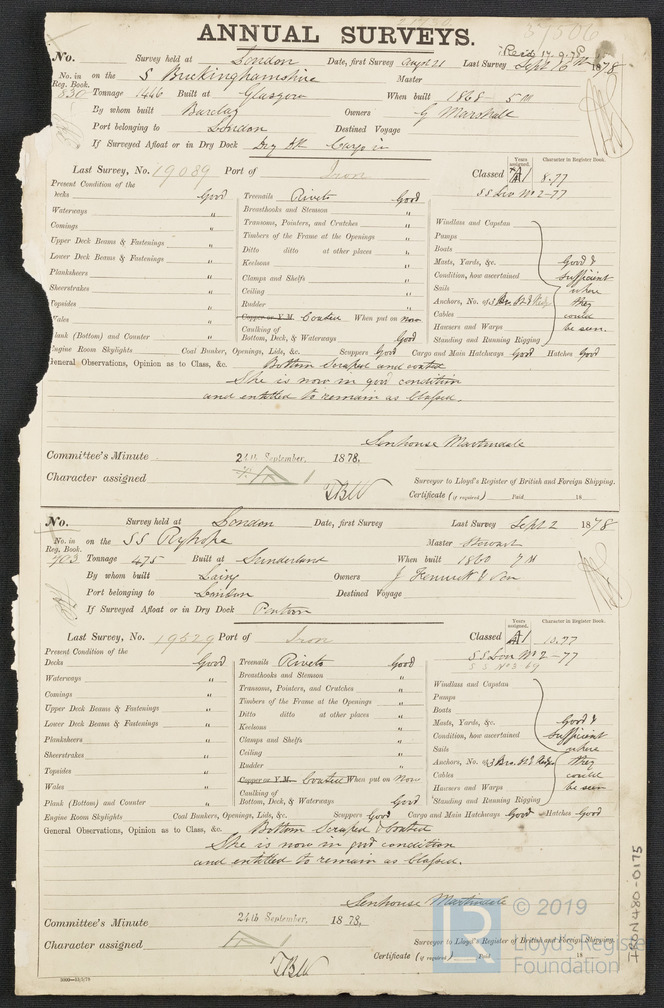 37506
ANNUAL SURVEYS.
Recd 17.9.78
No. Survey held at London Date, first Survey Augst 21 Last Survey Sept 16th 1878
No. in Reg. Book. 830 on the S Buckinghamshire Master
Tonnage 1446 Built at Glasgow When built 1868 5m
By whom built Barclay Owners G Marshall
Port belonging to London Destined Voyage
If Surveyed Afloat or in Dry Dock Dry Dk Cargo in
Last Survey, No. 19089 Port of Iron Classed Years assigned. A1 Character in Register Book. 8.77
SS Lon No 2-77
Present Condition of the
Decks Good Treenails Rivets Good
Waterways " Breasthooks and Stemson "
Comings " Transoms, Pointers, and Crutches " Windlass and Capstan
Upper Deck Beams & Fastenings " Timbers of the Frame at the Openings " Pumps
Lower Deck Beams & Fastenings " Ditto ditto at other places " Boats
Planksheers " Keelsons " Masts, Yards, &c. Good &
Sheerstrakes " Clamps and Shelfs " Condition, how ascertained sufficient
Topsides " Ceiling " Sails where
Wales " Rudder " Anchors, No. of 3 Br. St & Kedge they
Plank (Bottom) and Counter " Copper or Y.M. Coated When put on Now Cables could
Caulking of Bottom, Deck, & Waterways Good Hawsers and Warps be seen.
Standing and Running Rigging
Engine Room Skylights Coal Bunker, Openings, Lids, &c. Scuppers Good Cargo and Main Hatchways Good Hatches Good
General Observations, Opinion as to Class, &c. Bottom Scraped and coated
She is now in good condition
and entitled to remain as classed.
Senhouse Martindale
Committee's Minute 24th September, 1878.
Character assigned A1
TBW
Surveyor to Lloyd's Register of British and Foreign Shipping.
Certificate (if required) Paid 18
No. Survey held at London Date, first Survey Last Survey Sept 2 1878
No. in Reg. Book. 703 on the SS Ryhope Master Stewart
Tonnage 475 Built at Sunderland When built 1860 7M
By whom built Laing Owners J Fenwick & Son
Port belonging to London Destined Voyage
If Surveyed Afloat or in Dry Dock Pontoon
Last Survey, No. 19529 Port of Iron Classed Years assigned. A1 Character in Register Book. 12.77
SS Lon No 2-77
S S No 3 69
Present Condition of the
Decks Good Treenails Rivets Good
Waterways " Breasthooks and Stemson "
Comings " Transoms, Pointers, and Crutches " Windlass and Capstan
Upper Deck Beams & Fastenings " Timbers of the Frame at the Openings " Pumps
Lower Deck Beams & Fastenings " Ditto ditto at other places " Boats
Planksheers " Keelsons " Masts, Yards, &c. Good &
Sheerstrakes " Clamps and Shelfs " Condition, how ascertained sufficient
Topsides " Ceiling " Sails where
Wales " Rudder " Anchors, No. of 3 Bro. St & Kedge they
Plank (Bottom) and Counter " Copper or Y.M. Coated When put on Now Cables could
Caulking of Bottom, Deck, & Waterways Good Hawsers and Warps be seen
Standing and Running Rigging
Engine Room Skylights Coal Bunkers, Openings, Lids, &c. Scuppers Good Cargo and Main Hatchways Good Hatches Good
General Observations, Opinion as to Class, &c. Bottom Scraped & Coated
She is now in good condition
and entitled to remain as classed.
Senhouse Martindale
Committee's Minute 24th September, 1878.
Character assigned A1
TBW
Surveyor to Lloyd's Register of British and Foreign Shipping.
Certificate (if required) Paid 18
IRON480-0175
LR © 2019
Lloyd's Register
Foundation